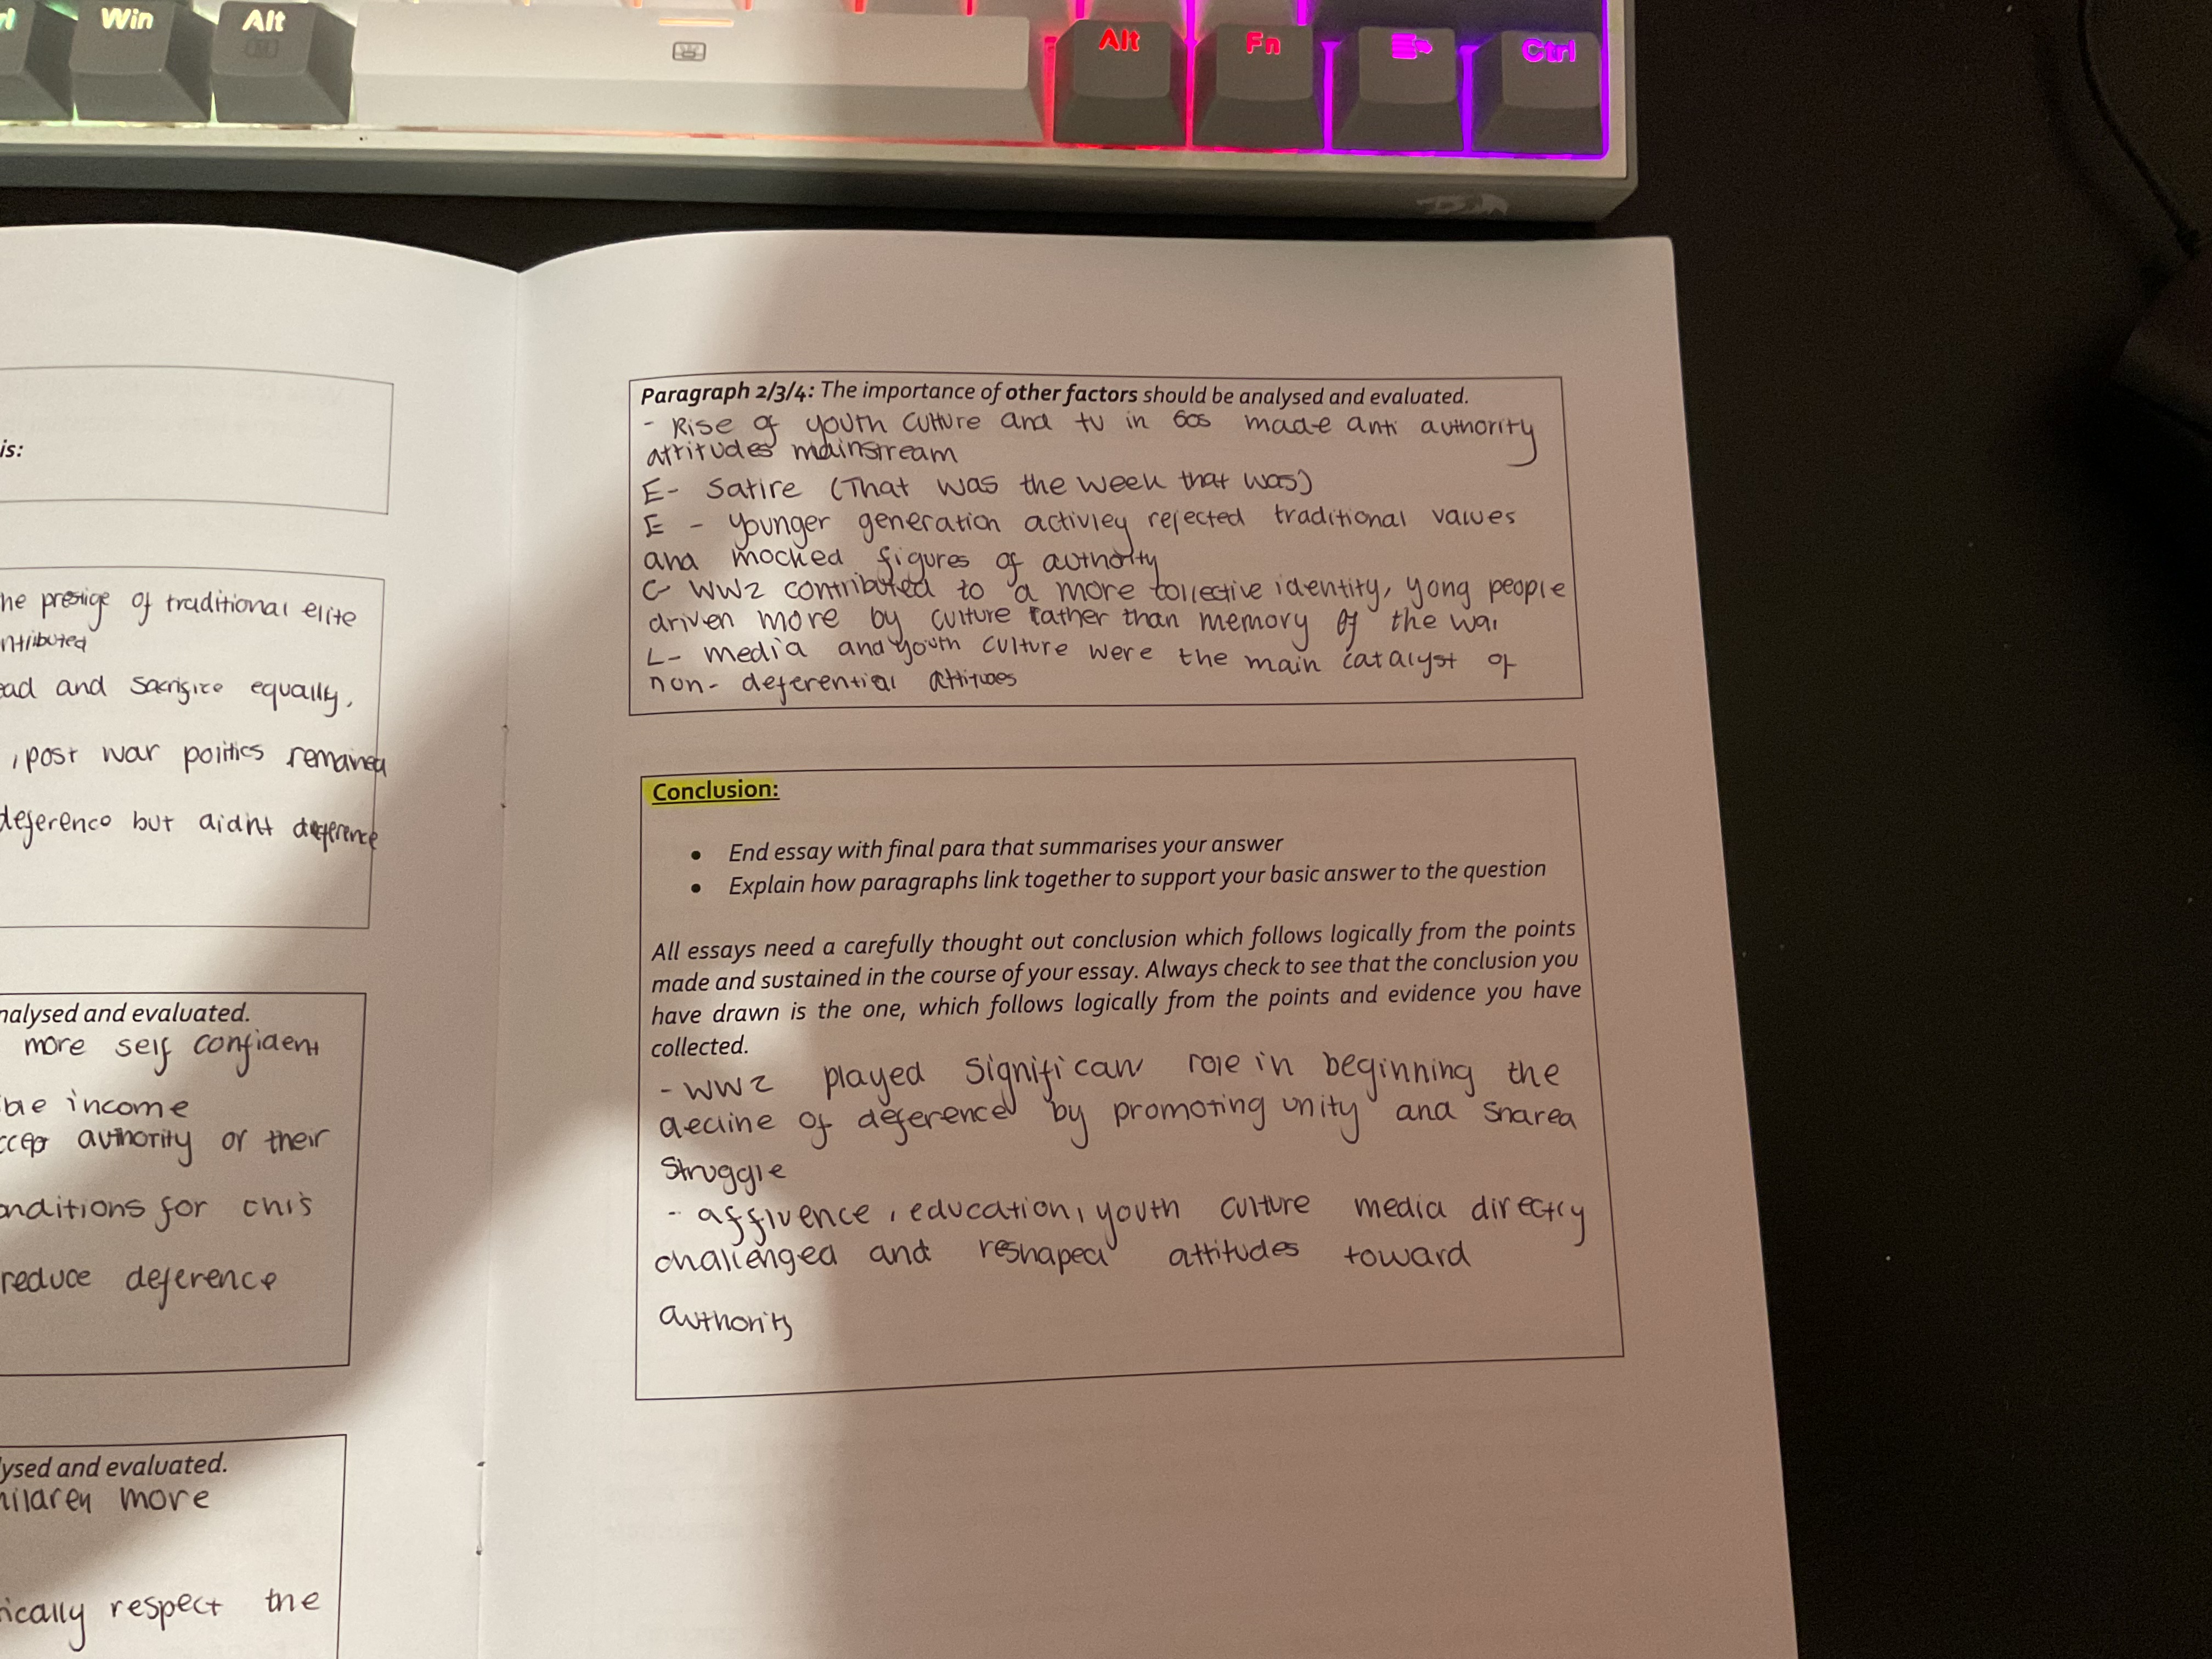 Win
Alt
Alt
Fn
Ctrl
is:
he prestige of traditional elite
ntributed
ead and sacrifice equally,
, post war politics remained
deference but didnt deference
nalysed and evaluated.
more self confident
ble income
ccept authority or their
onditions for this
reduce deference
ysed and evaluated.
hildren more
ically respect the
Paragraph 2/3/4: The importance of other factors should be analysed and evaluated.
- Rise of youth culture and tv in 60s made anti authority
attitudes mainstream
E- Satire (That was the week that was)
E - younger generation activley rejected traditional values
and mocked figures of authority
C- WW2 contributed to a more collective identity, yong people
driven more by culture rather than memory of the war
L- media and youth culture were the main catalyst of
non- deferential attitudes
Conclusion:
• End essay with final para that summarises your answer
• Explain how paragraphs link together to support your basic answer to the question
All essays need a carefully thought out conclusion which follows logically from the points
made and sustained in the course of your essay. Always check to see that the conclusion you
have drawn is the one, which follows logically from the points and evidence you have
collected.
- WW2 played significant role in beginning the
decline of deference by promoting unity and shared
struggle
- affluence, education, youth culture media directly
challenged and reshaped attitudes toward
authority